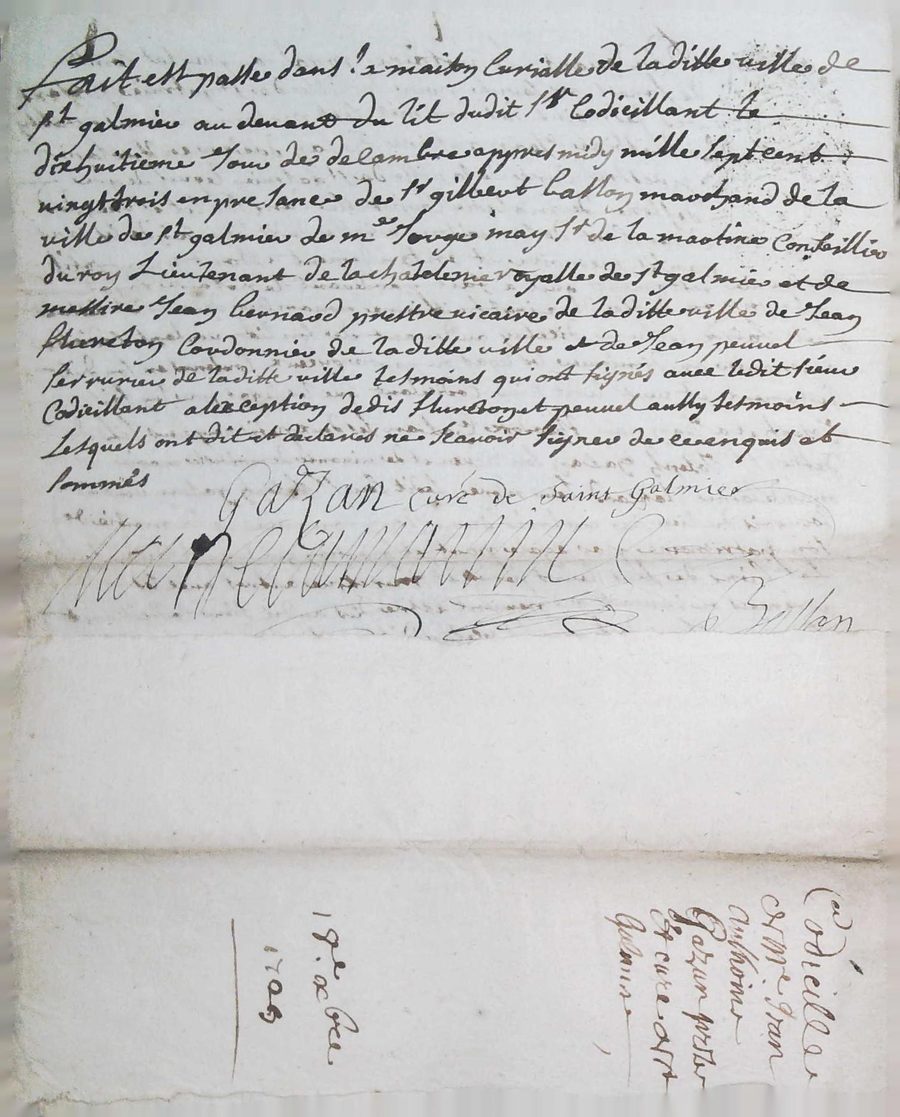 Fait et passe dans la maison Curialle de laditte ville de
st galmier au devant du lit dudit sr Codicillant le
dixhuitieme Jour de decambre appres midy mille sept cent
vingt trois en presance de sr gilbert ballon marchand de la
ville de st galmier de me may sr de la martine Conseillier
du roy Lieutenant de la chatelenie royalle de st galmier et de
messire Jean bernard prestre vicaire de laditte ville de Jean
flureton Cordonnier de laditte ville et de Jean peuvel
serrurier de laditte ville tesmoins qui ont signés avec ledit sieur
Codicillant a lexception desdis flureton et peuvel aussy tesmoins
Lesquels ont dit et declarés ne scavoir signer de ce enquis et
sommés
Gazan curé de Saint Galmier
Mai Delamartine
Ballon
Codicille
de Mre Jean
Anthoine
Gazan prstre
et curé de St
Galmier
18e xbre
1723